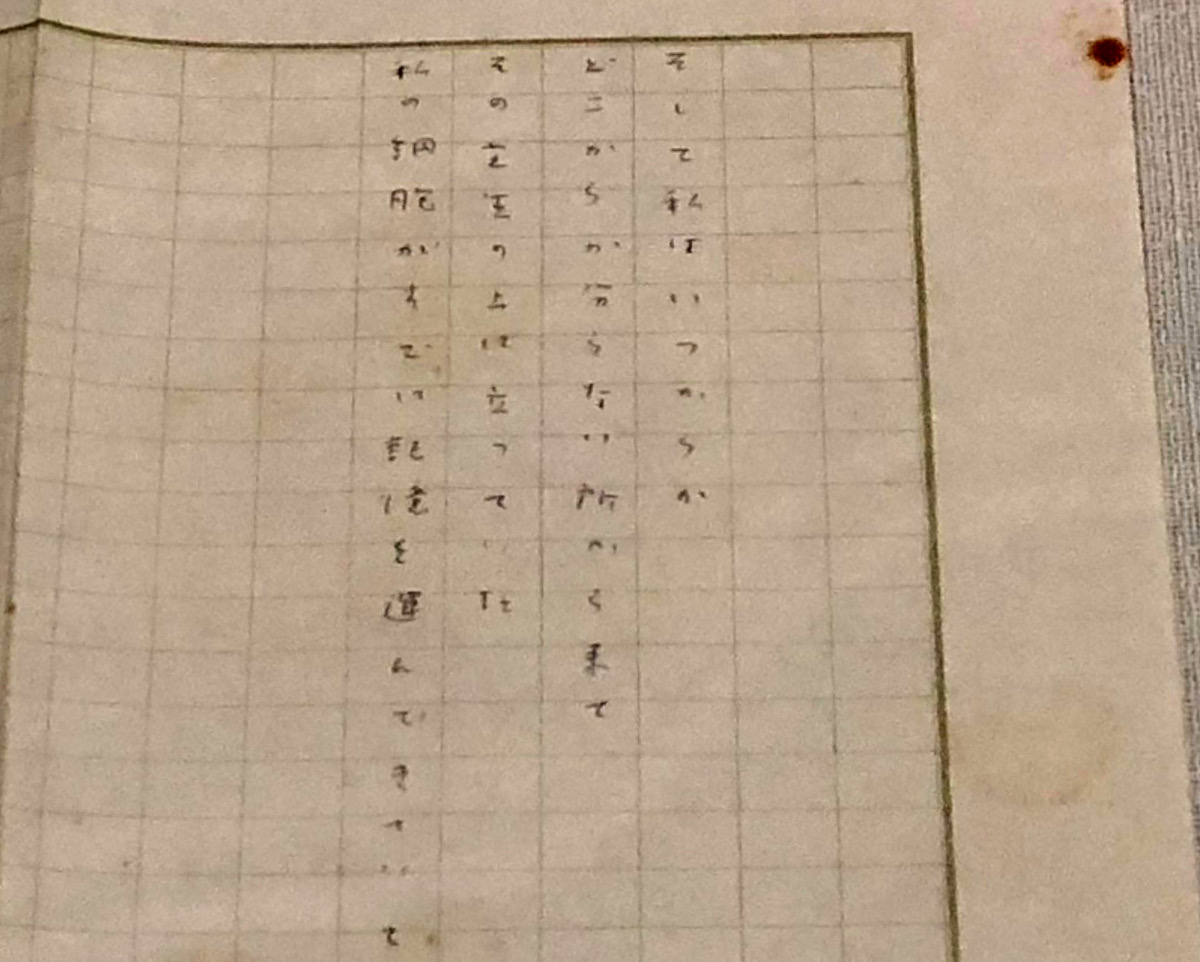 そして私はいつからか
どこからか分らない所から来て
その の上に立っていた
私の細胞がすでに記憶を運んできていて